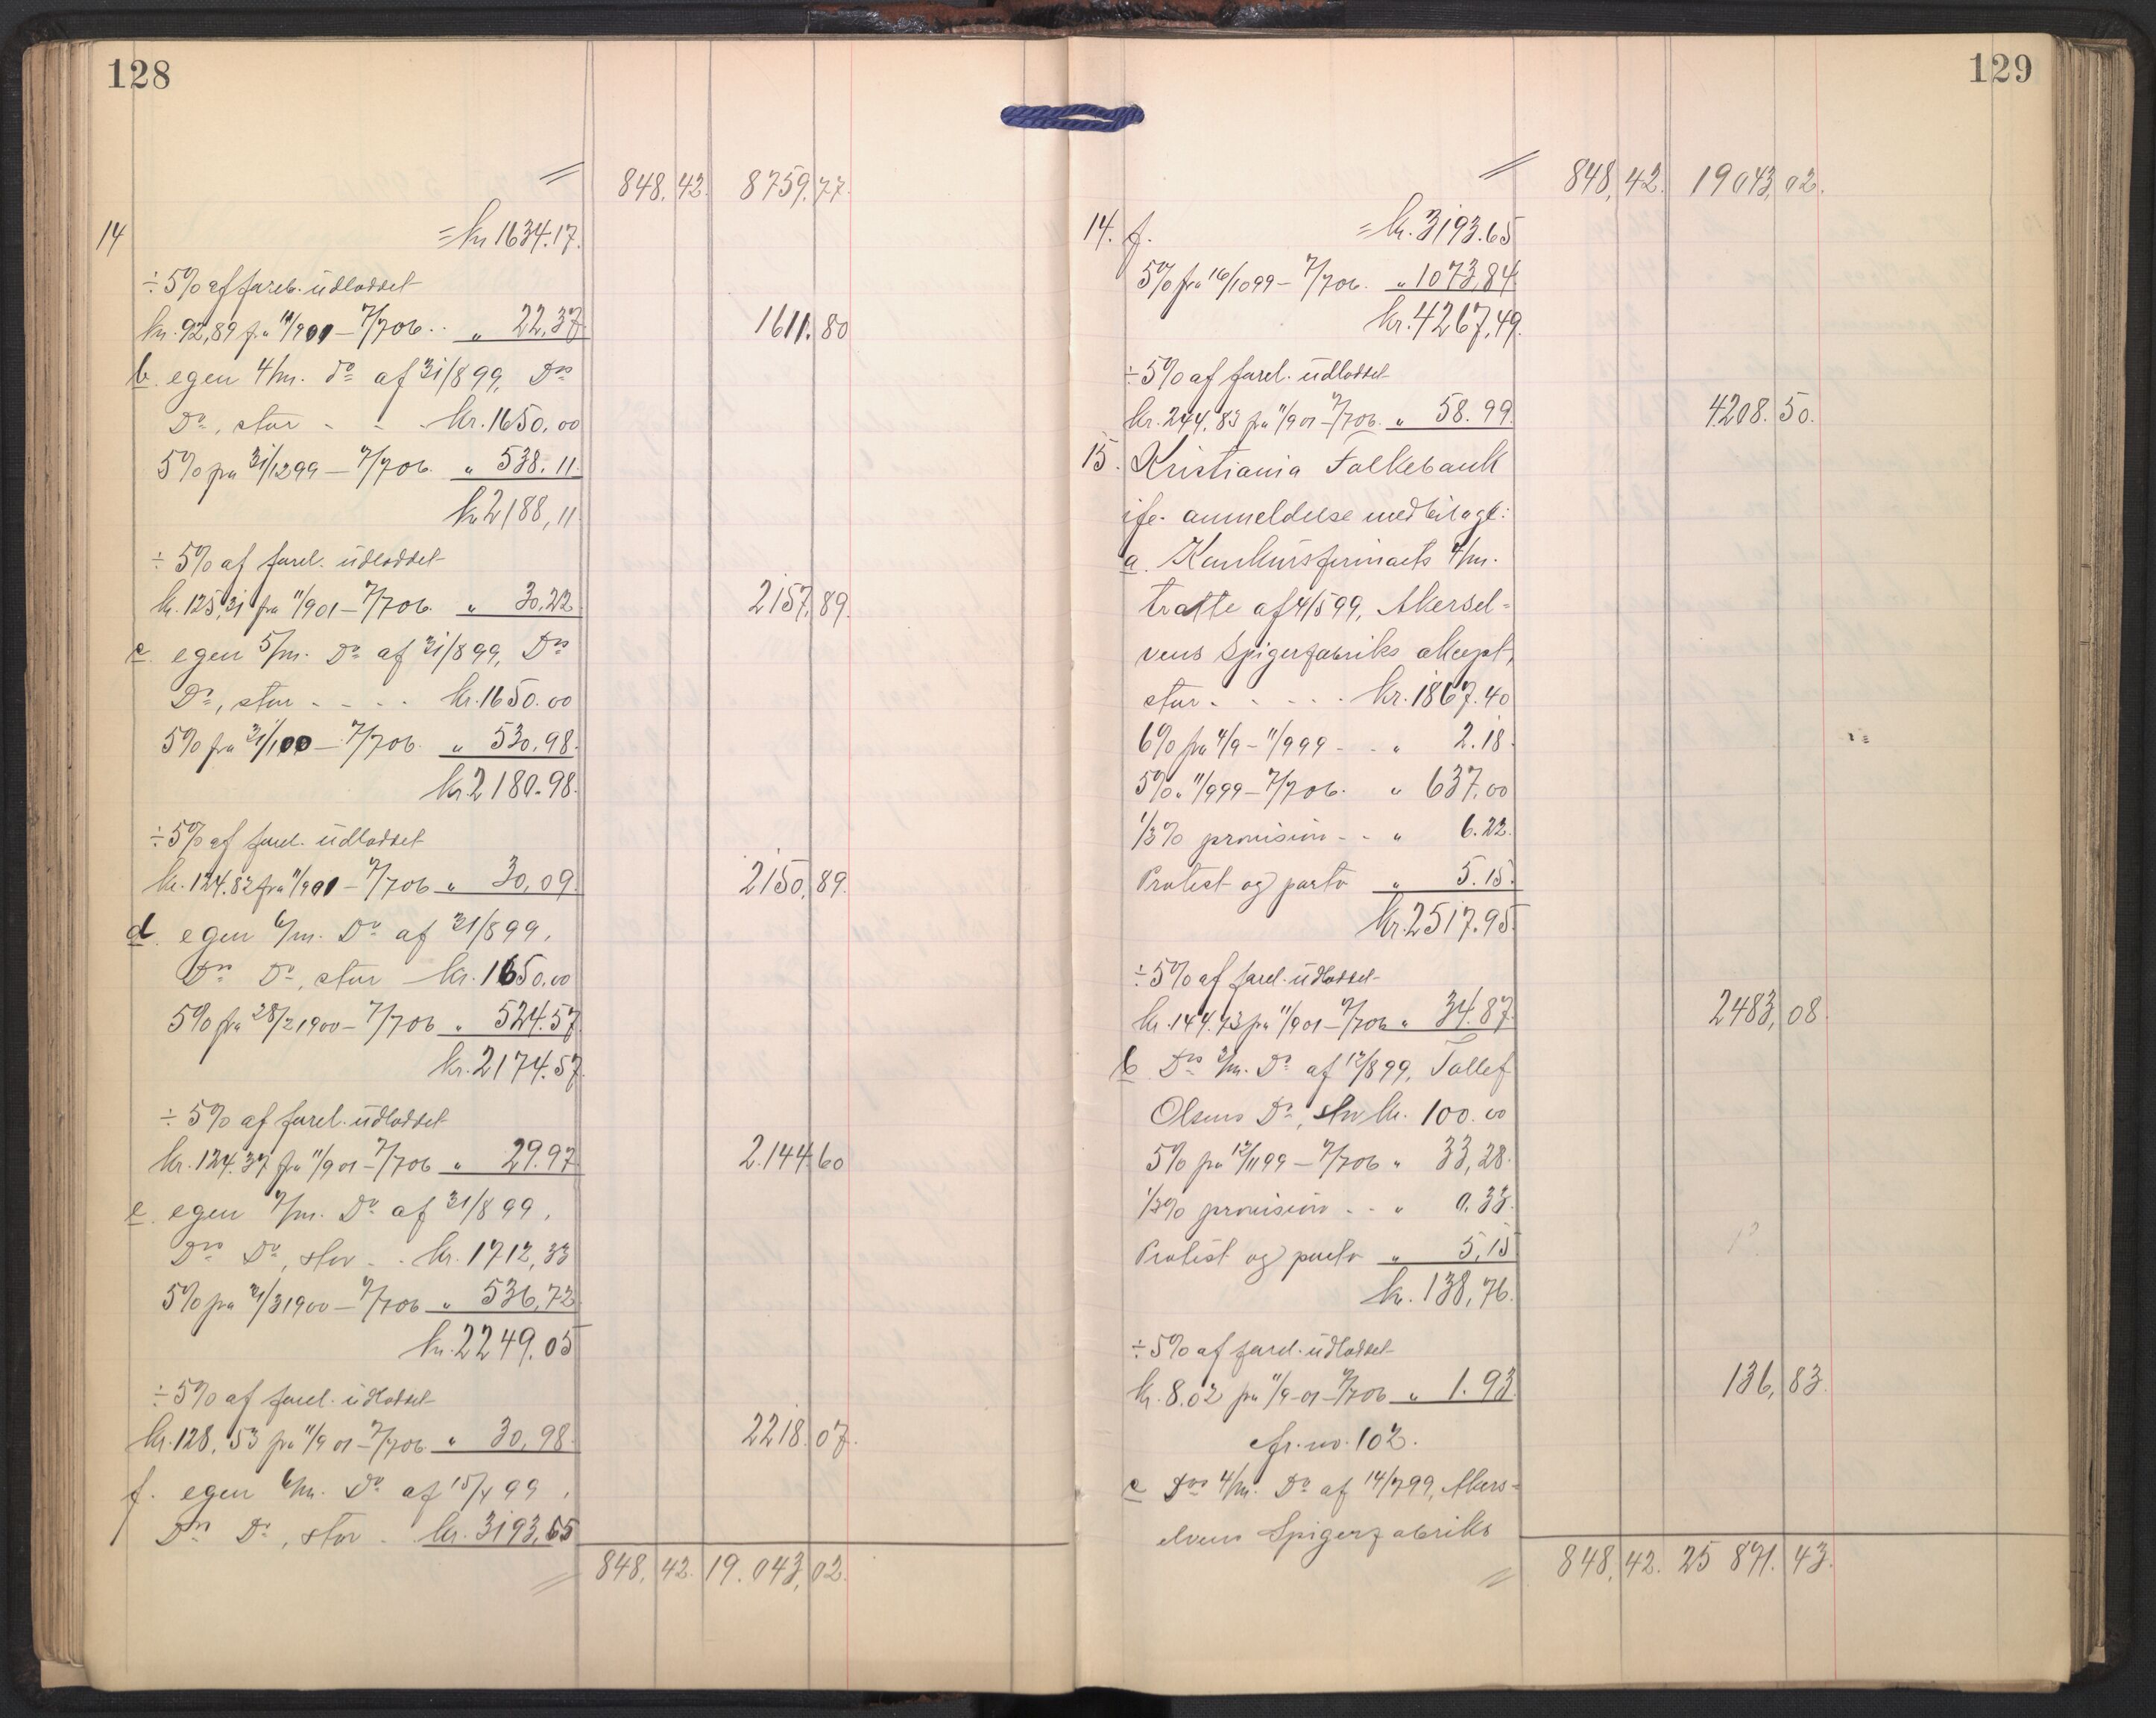 128
= 848,42. 8759,77.
14 = kr 1634.17.
÷ 5% af foreb. udloddet
kr. 92,89 fra 11/901 – 7/706 .. „ 22,37 1611.80
b. egen 4/m. do af 31/899, Ds
Do, stor - - - kr. 1650,00
5% fra 31/1299 – 7/706. „ 538.11.
kr 2188,11.
÷ 5% af forel. udloddet
kr. 125,31 fra 11/901 – 7/706. „ 30,22 2157,89.
c. egen 5/m. Do af 31/899, Ds
Do, stor - - - - kr. 1650.00
5% fra 31/100 – 7/706. „ 530,98.
kr. 2180.98.
÷ 5% af forel. udloddet
kr. 124.82 fra 11/901 – 7/706 „ 30,09. 2150,89.
d. egen 6/m. Do af 31/899,
Ds Do, stor – kr. 1650,00
5% fra 28/21900 – 7/706 „ 524.57.
kr. 2174.57.
÷ 5% af forel. udloddet
kr. 124.37 fra 11/901 – 7/706 „ 29.97. 2.144.60
e. egen 7/m. Do af 31/899,
Ds Do, stor - - kr. 1712,33
5% fra 31/31900 – 7/706 „ 536,72.
kr. 2249.05
÷ 5% af forel. udloddet
kr. 128,53 fra 11/901 – 7/706. „ 30,98. 2218.07.
f. egen 6/m. Do af 15/499,
Ds Do, stor - kr. 3193,65
= 848,42. 19.043,02.
129
= 848,42. 19043,02.
14. f. = kr. 3193.65
5% fra 16/1099 – 7/706. „ 1073,84.
kr. 4267,49.
÷ 5% af forel. udloddet
kr. 244.83 fra 11/901 – 7/706. „ 58.99. 4208.50.
15. Kristiania Folkebank
ifø. anmeldelse med bilage:
a. Konkursfirmaets 4/m.
tratte af 4/599, Akersel=
vens Spigerfabriks akcept,
stor - - - - - kr. 1867.40
6% fra 4/9 – 11/999 - - „ 2.18.
5% „ 11/999 – 7/706. „ 637,00
1/3% provision - - „ 6.22.
Protest og porto „ 5.15.
kr. 2517.95.
÷ 5% af forel. udloddet
kr. 144.43 fra 11/901 – 7/706 „ 34.87. 2483,08.
b. Ds 3/m. Do af 12/899, Tollef
Olsens Do, stor kr. 100.00
5% fra 12/1199 – 7/706 „ 33,28.
1/3% provision - - „ 0.33.
Protest og porto „ 5,15
kr. 138,76.
÷ 5% af forel. udloddet
kr. 8.02 fra 11/9-01 – 7/706 „ 1.93. 136,83.
cfr. no. 102.
c. Ds 4/m. Do af 14/799, Akers=
elvens Spigerfabriks
= 848,42. 25 871.43.